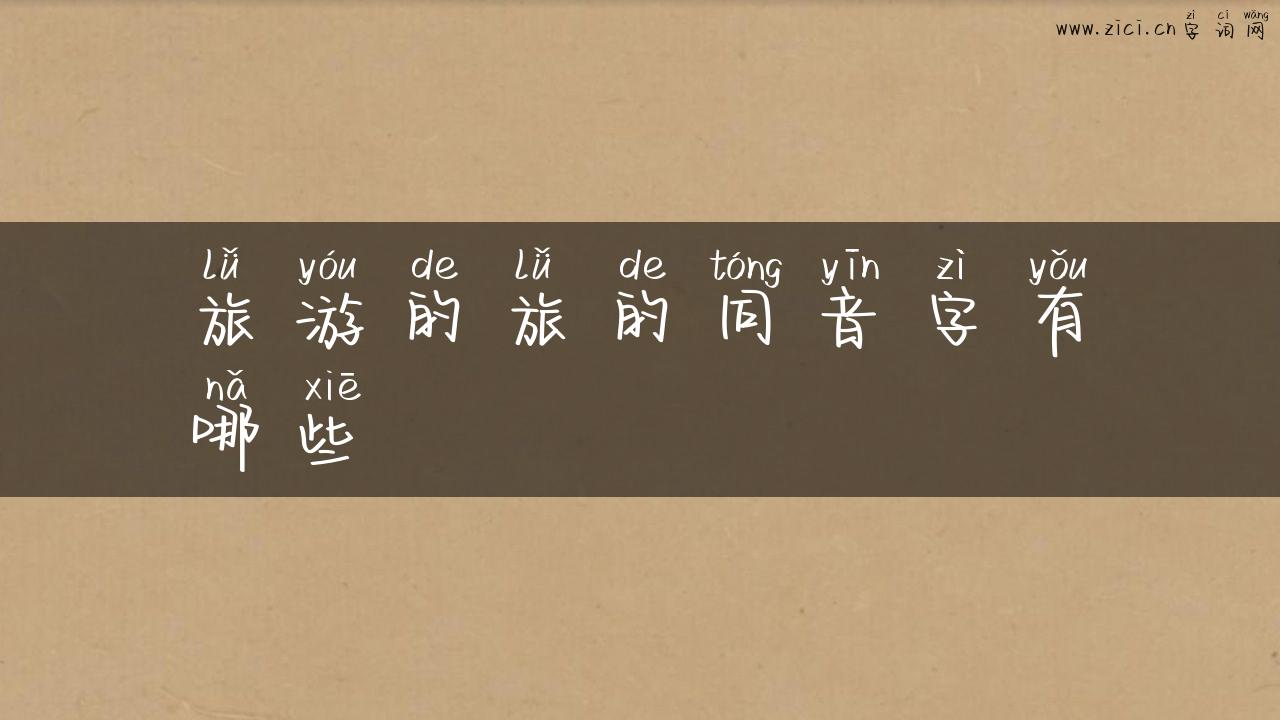 zì cí wǎng
www.zici.cn 字 词 网
lǚ yóu de lǚ de tóng yīn zì yǒu
旅 游 的 旅 的 同 音 字 有
nǎ xiē
哪 些